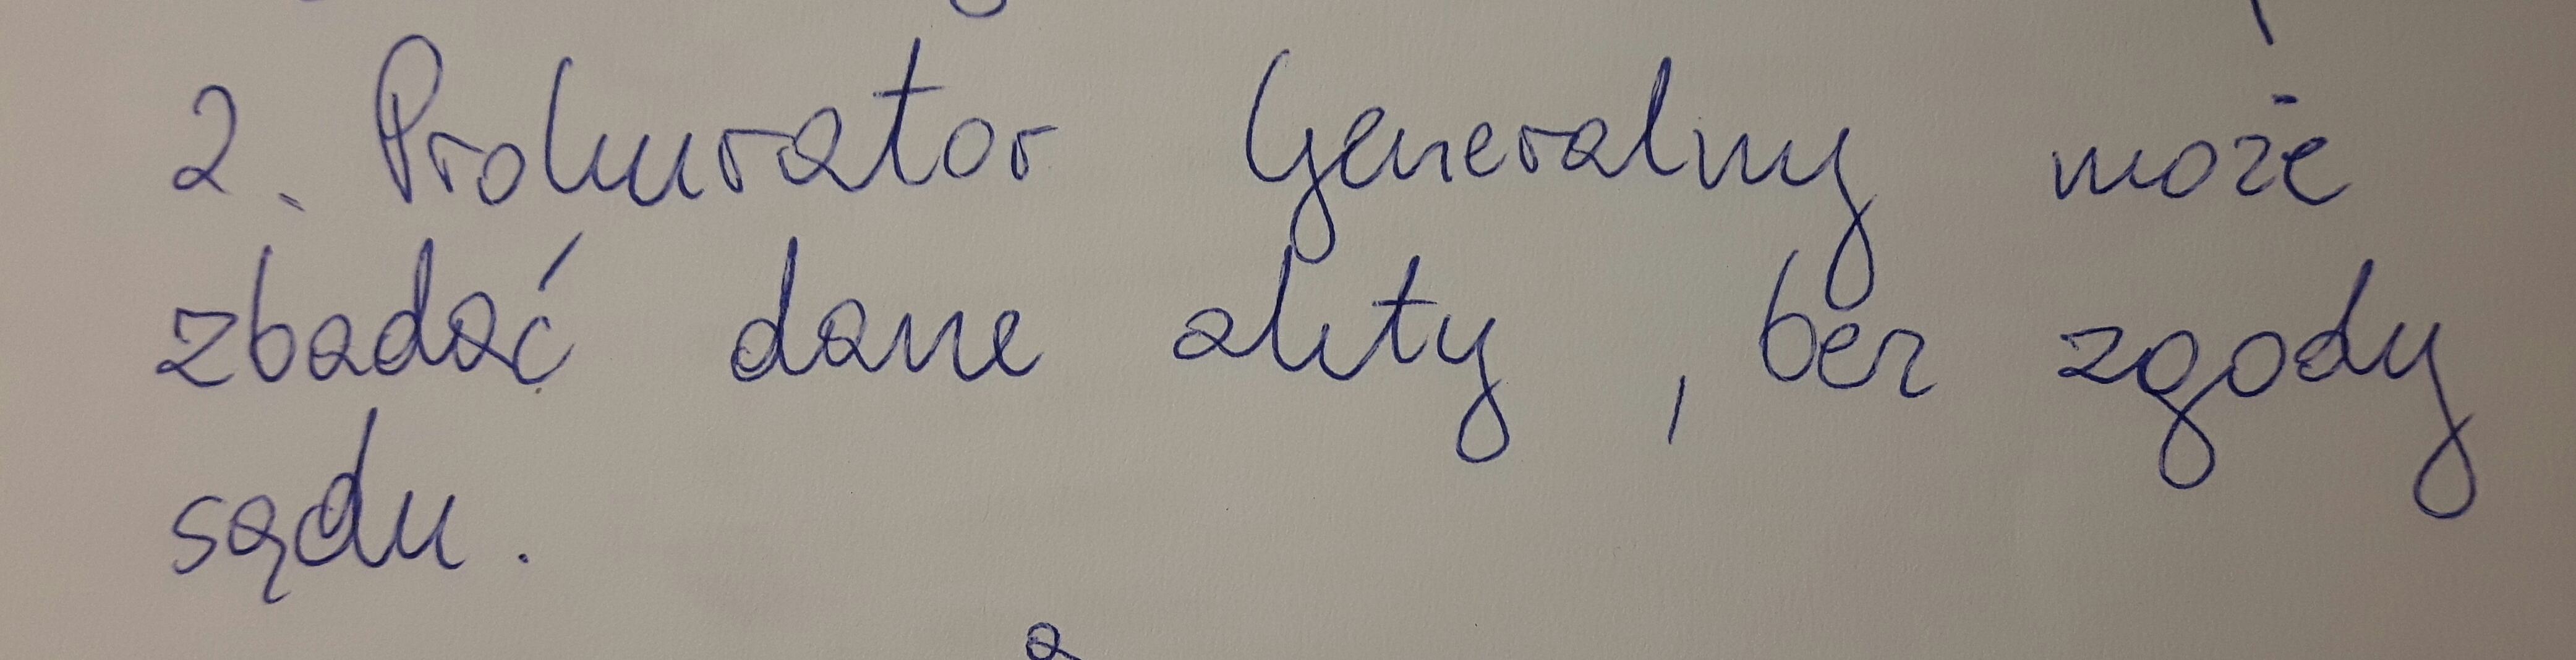 2. Prokurator Generalny może
zbadać dane akty, bez zgody
sądu.